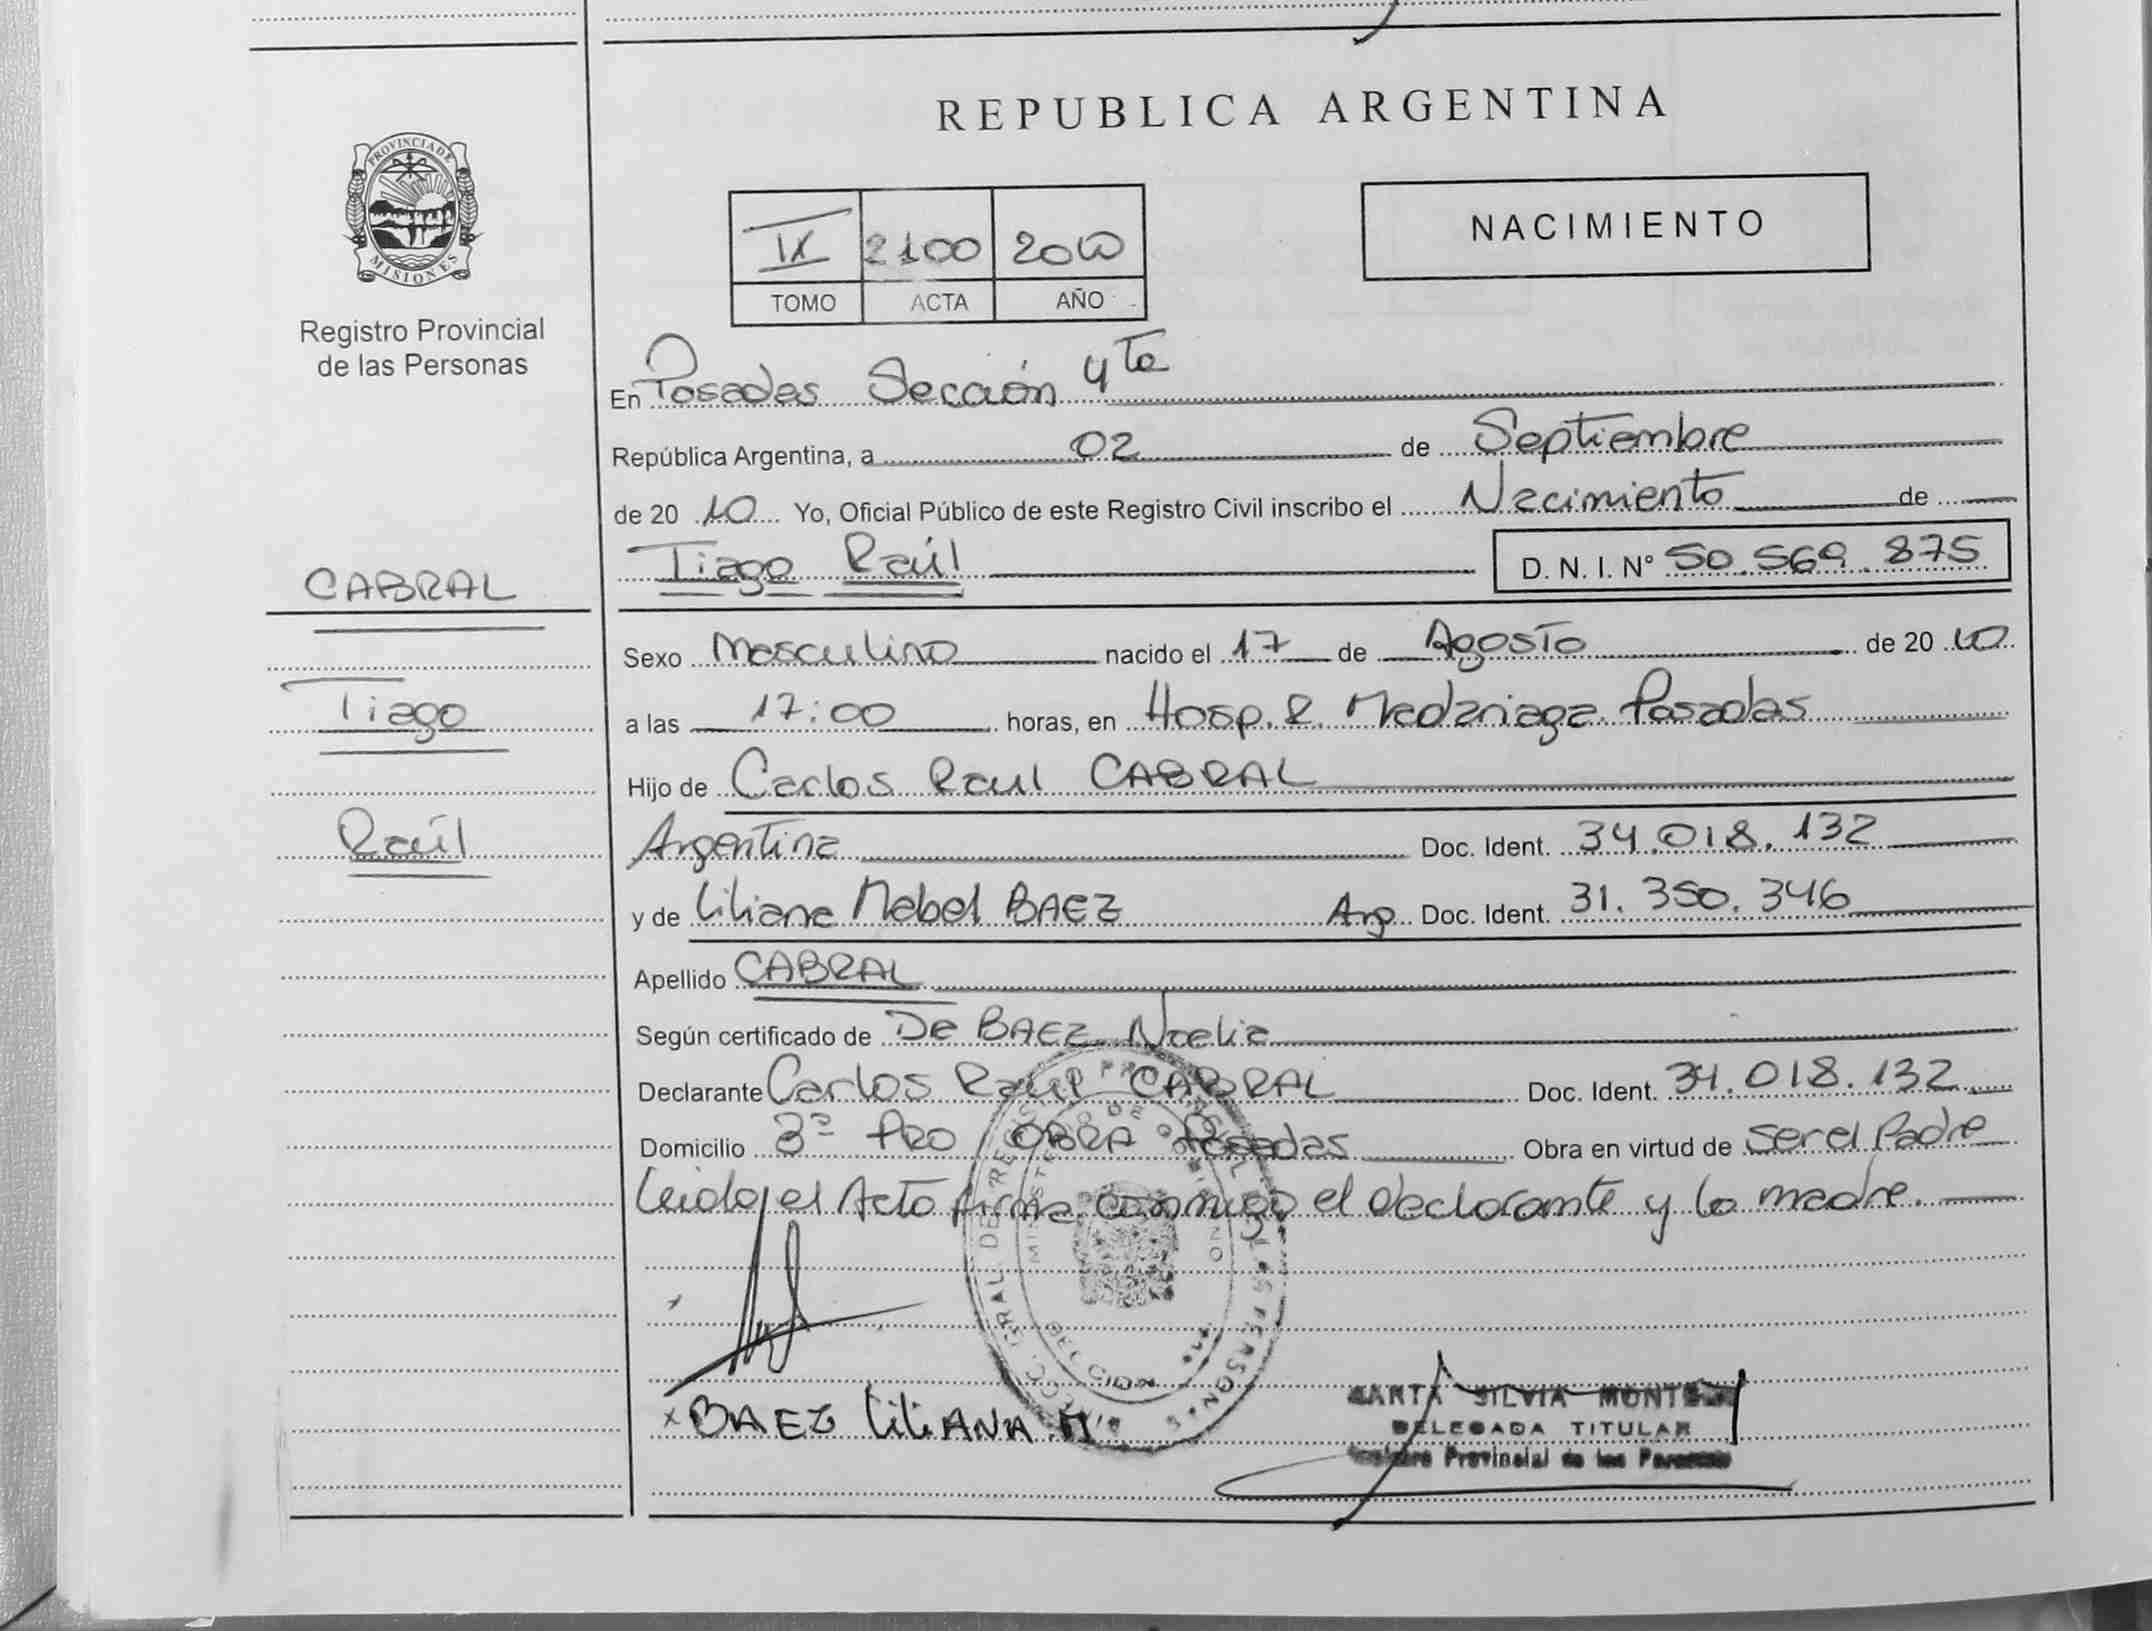 REPUBLICA ARGENTINA
PROVINCIA DE
MISIONES
Registro Provincial
de las Personas
IX 2100 2010
TOMO ACTA AÑO
NACIMIENTO
En Posadas Sección 4ta
República Argentina, a 02 de Septiembre
de 20 10 Yo, Oficial Público de este Registro Civil inscribo el Nacimiento de
Tiago Raúl D. N. I. Nº 50.569.875
CABRAL
Tiago
Raúl
Sexo Masculino nacido el 17 de Agosto de 20 10
a las 17:00 horas, en Hosp. R. Madariaga Posadas
Hijo de Carlos Raul CABRAL
Argentina Doc. Ident. 34.018.132
y de Liliana Mabel BAEZ Arg Doc. Ident. 31.350.346
Apellido CABRAL
Según certificado de De BAEZ Noelia
Declarante Carlos Raúl CABRAL Doc. Ident. 34.018.132
Domicilio 3º Pto OBRA Posadas Obra en virtud de ser el Padre
Leido el Acto firma conmigo el declarante y la madre.
x BAEZ LiLiANA M
SILVIA
DELEGADA TITULAR
Provincial de las Personas